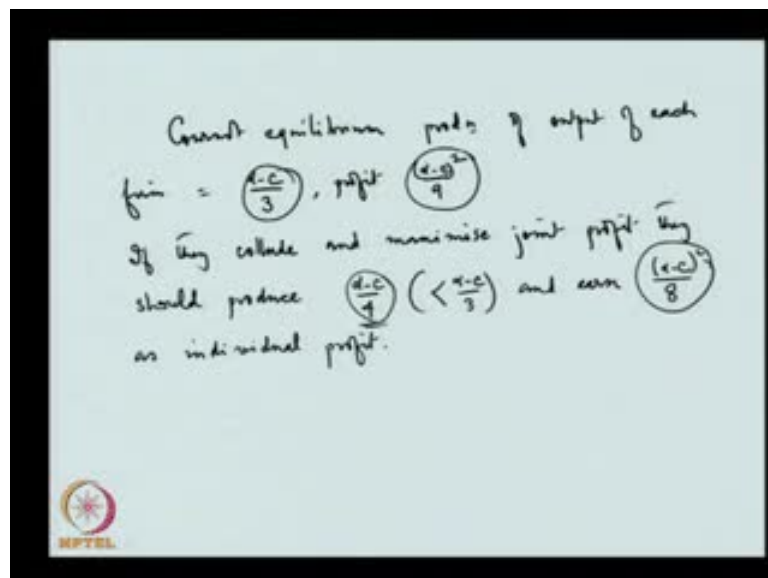 Cournot equilibrium prodn of output of each
firm = (α-c)/3, profit (α-c)²/9
If they collude and maximise joint profit they
should produce (α-c)/4 (< (α-c)/3) and earn (α-c)²/8
as individual profit.
NPTEL